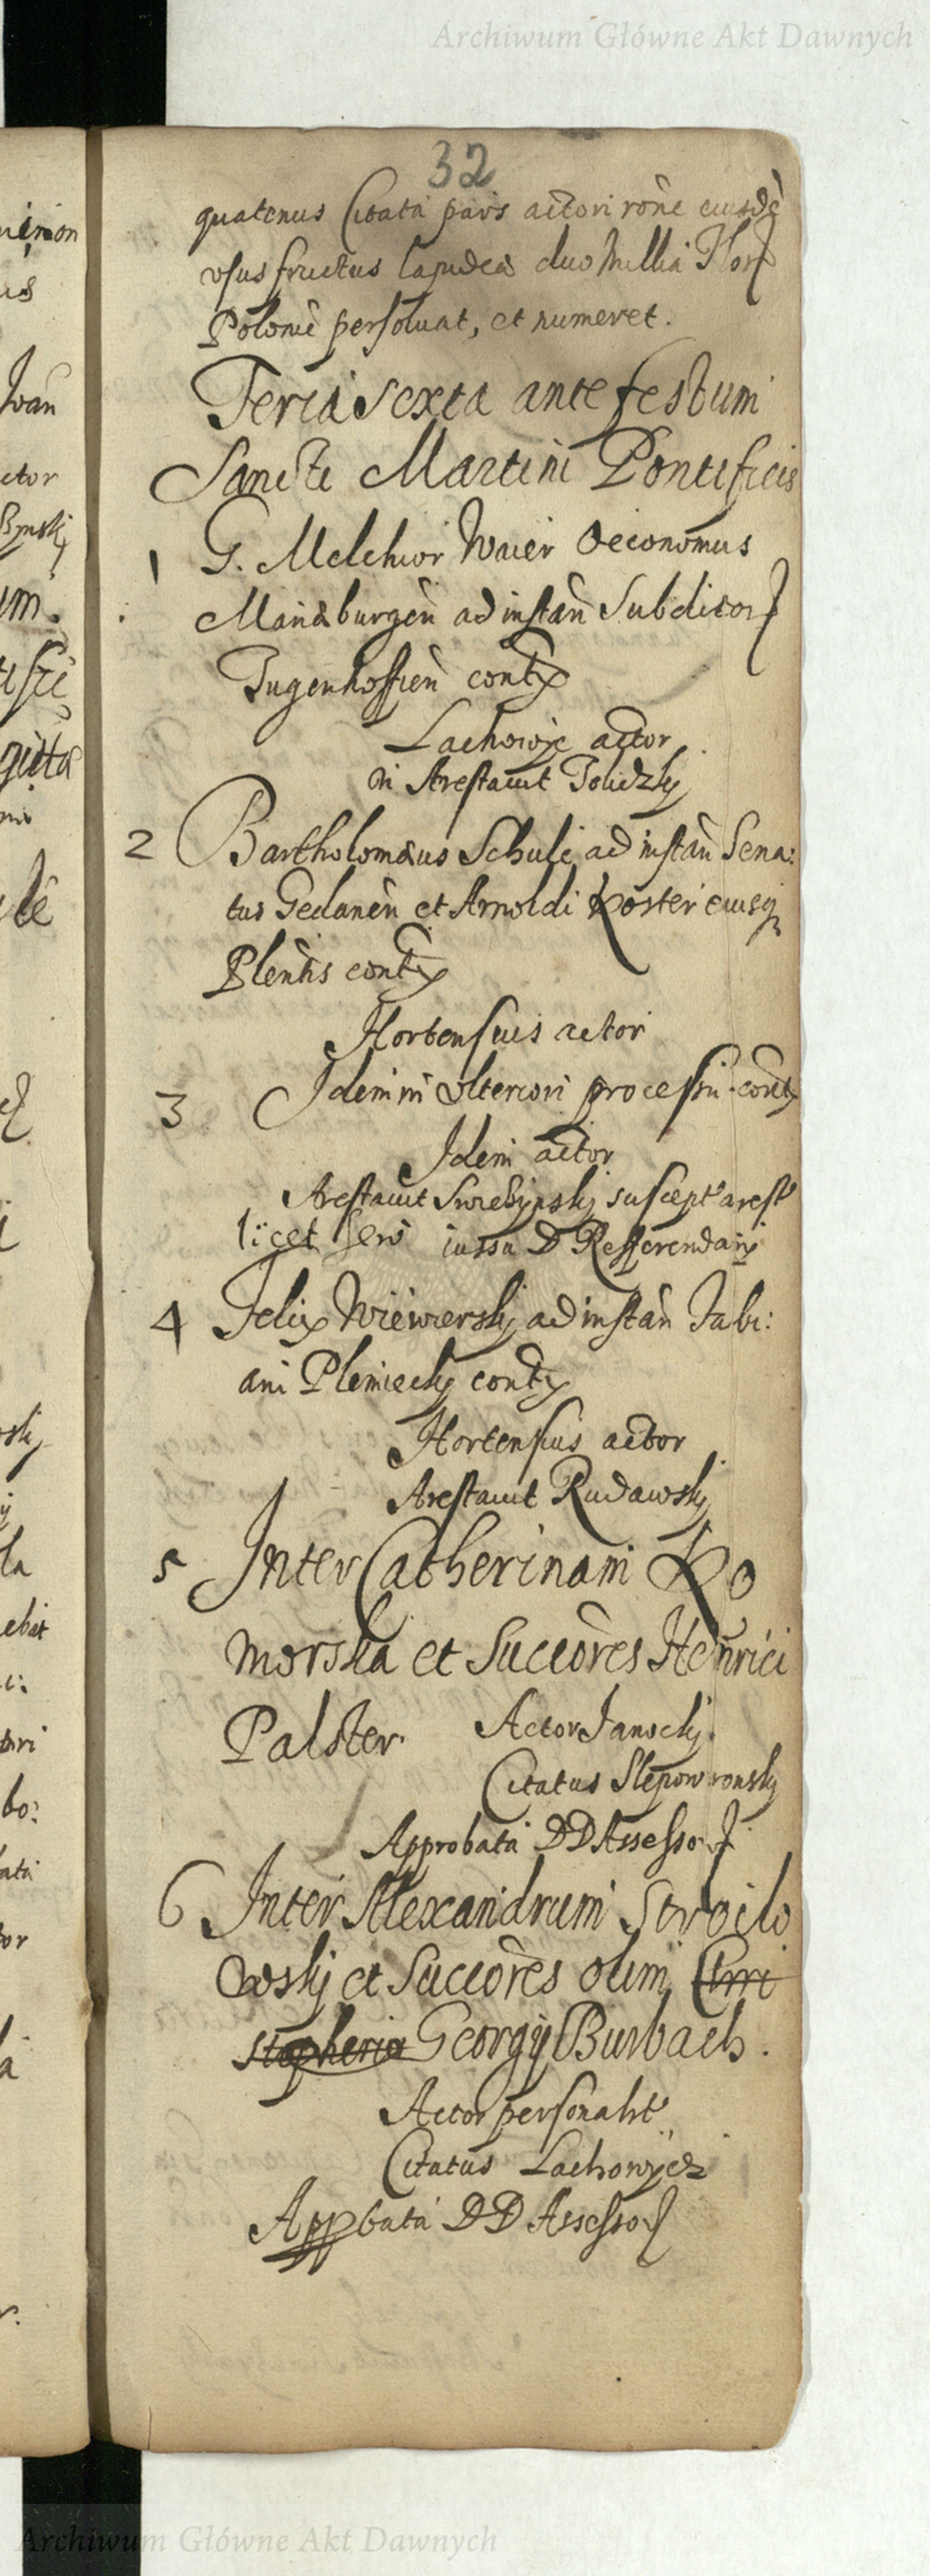 Archiwum Główne Akt Dawnych
32
quatenus Citata pars actori rone eiusdē
vsus fructus lapideae duo Millia Flor
Polonic persoluat, et numeret.
Feria Sexta ante festum
Sancti Martini Pontificis
1 G. Melchior Waier Oeconomus
Mariaeburgen ad instan Subditor
Tugenhoffien cont
Lachowic actor
Arestauit Tolidzky
2 Bartholomaeus Schulc ad instan Sena:
tus Gedanen et Arnoldi Koster eiusq
Plentis cont
Hortensius actor
3 Idem in vlteriori processu cont
Idem actor
Arestauit suscept arest
licet sero iussu D Refferendarij
4 Felix Wiewiersky ad instan Fabi:
ani Plemiecky cont
Hortensius actor
Arestauit Rudawsky
5 Inter Catherinam Ko
morska et Succores Henrici
Palster. Actor Janocky.
Citatus Slepowronsky
Approbata DD Assessor
6 Inter Alexandrum Stroilo
wsky et Succores olim Cirri
stopheri Georgij Burbach.
Actor personalit
Citatus Lachowycz
Appbata DD Assessor
Archiwum Główne Akt Dawnych